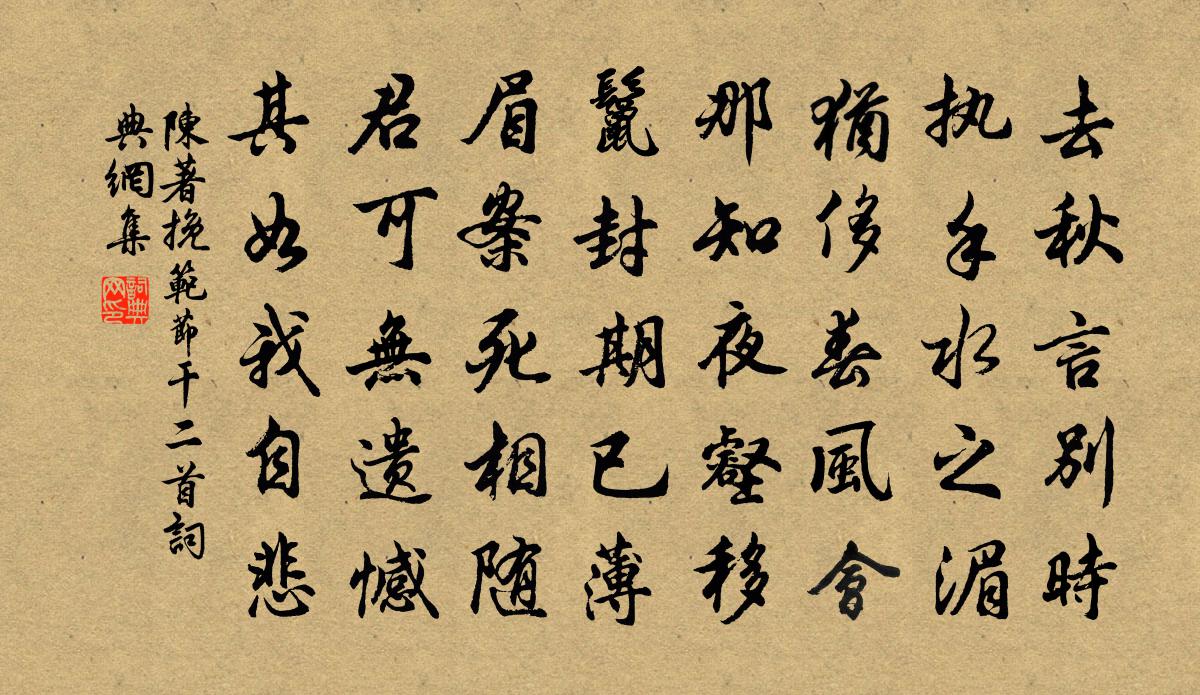 去秋言别時
执手水之湄
猶侈春風會
那知夜壑移
鬣封期已薄
眉案死相随
君可無遺憾
其如我自悲
陳著挽範節干二首詞
典網集
詞典網印